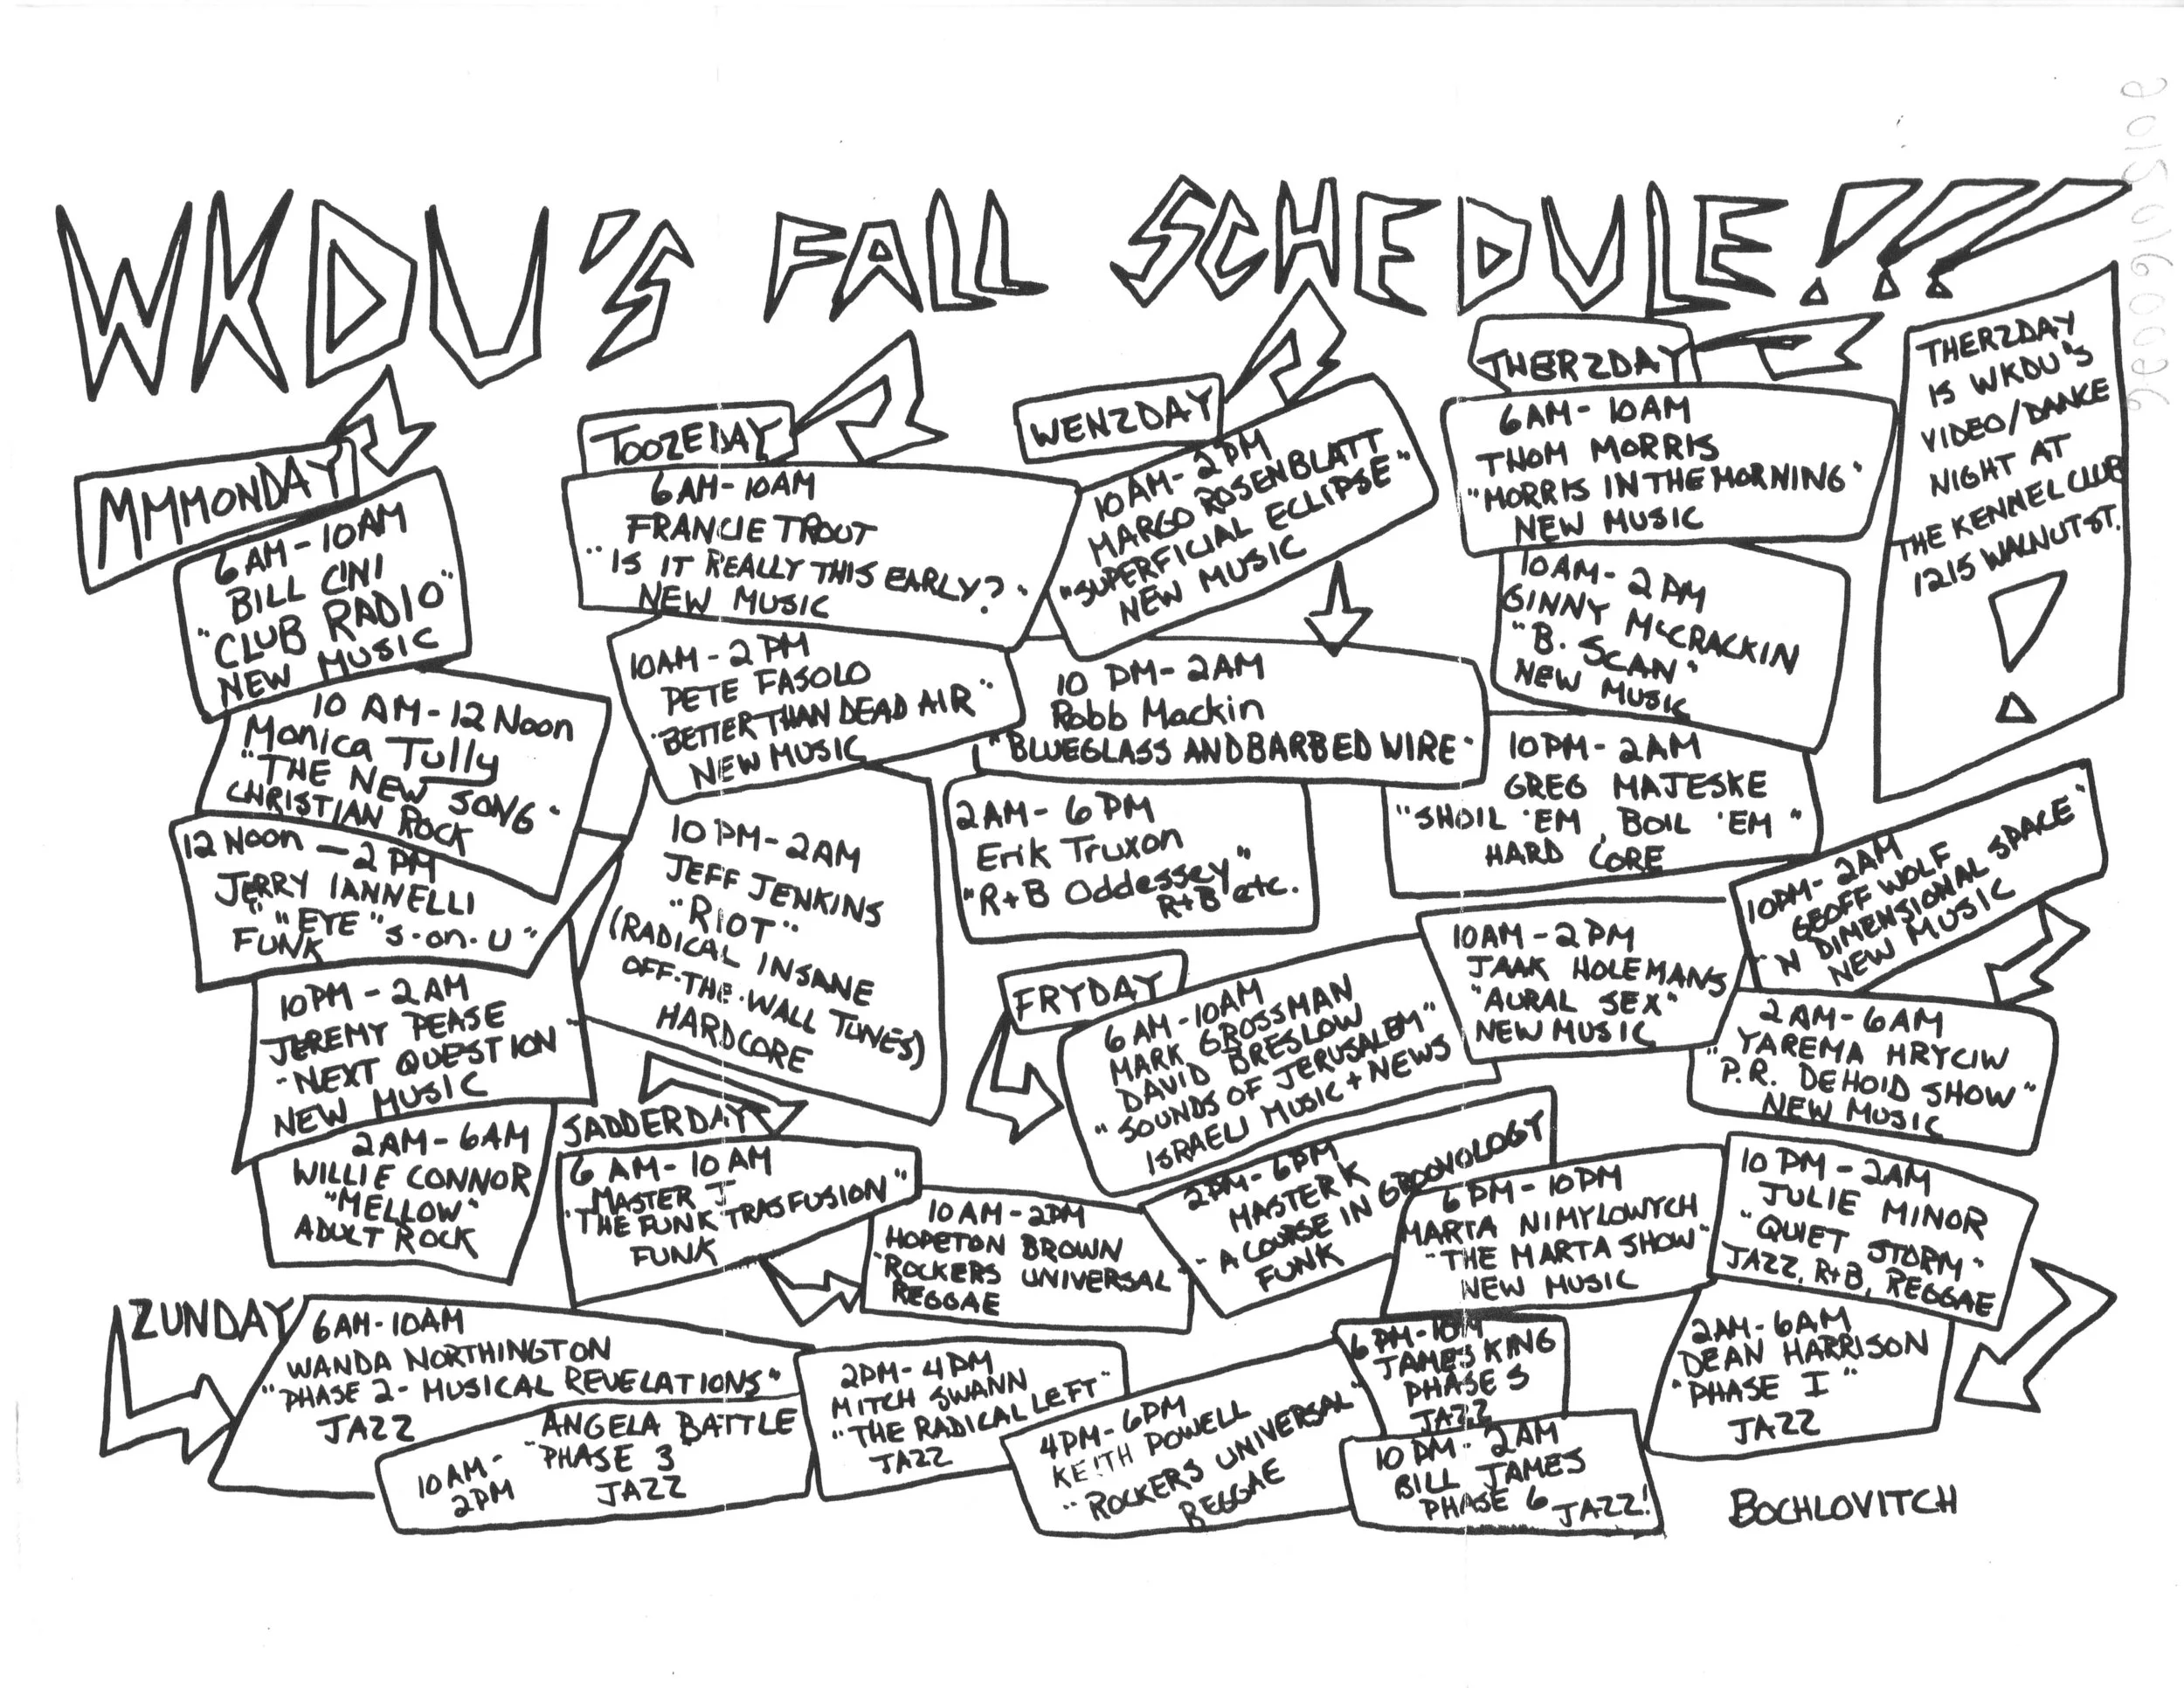 WKDU'S FALL SCHEDULE!!!
MMMONDAY
6AM-10AM
BILL CINI
"CLUB RADIO"
NEW MUSIC
10 AM-12 Noon
Monica Tully
"THE NEW SONG"
CHRISTIAN ROCK
12 Noon - 2 PM
JERRY IANNELLI
" "EYE" s-on-U"
FUNK
10PM - 2AM
JEREMY PEASE
"NEXT QUESTION"
NEW MUSIC
2AM-6AM
WILLIE CONNOR
"MELLOW"
ADULT ROCK
TOOZEDAY
6AM-10AM
FRANCIE TROUT
"IS IT REALLY THIS EARLY?"
NEW MUSIC
10AM-2PM
PETE FASOLO
"BETTER THAN DEAD AIR"
NEW MUSIC
10PM-2AM
JEFF JENKINS
"RIOT"
(RADICAL INSANE
OFF-THE-WALL TUNES)
HARDCORE
WENZDAY
10AM-2PM
MARGO ROSENBLATT
"SUPERFICIAL ECLIPSE"
NEW MUSIC
10 PM-2AM
Robb Mackin
"BLUEGLASS AND BARBED WIRE"
2AM-6PM
Erik Truxon
"R+B Oddessey"
R+B etc.
THERZDAY
6AM-10AM
THOM MORRIS
"MORRIS IN THE MORNING"
NEW MUSIC
10AM-2PM
GINNY McCRACKIN
"B. SCAN"
NEW MUSIC
10PM-2AM
GREG MAJESKE
"SHOIL 'EM, BOIL 'EM"
HARD CORE
THERZDAY
IS WKDU'S
VIDEO/DANCE
NIGHT AT
THE KENNEL CLUB
1215 WALNUT ST.
!
FRYDAY
6AM-10AM
MARK GROSSMAN
DAVID BRESLOW
"SOUNDS OF JERUSALEM"
ISRAELI MUSIC + NEWS
10AM-2PM
JAAK HOLEMANS
"AURAL SEX"
NEW MUSIC
10PM-2AM
GEOFF WOLF
"N DIMENSIONAL SPACE"
NEW MUSIC
2AM-6AM
YAREMA HRYCIW
"P.R. DEHOID SHOW"
NEW MUSIC
SADDERDAY
6 AM-10AM
MASTER J
"THE FUNK TRASFUSION"
FUNK
10AM-2PM
HOPETON BROWN
"ROCKERS UNIVERSAL"
REGGAE
2PM-6PM
MASTER K
"A COURSE IN GROOVOLOGY
FUNK
6PM-10PM
MARTA NIMYLOWYCH
"THE MARTA SHOW"
NEW MUSIC
10PM-2AM
JULIE MINOR
"QUIET STORM"
JAZZ, R+B, REGGAE
2AM-6AM
DEAN HARRISON
"PHASE I"
JAZZ
ZUNDAY
6AM-10AM
WANDA NORTHINGTON
"PHASE 2- MUSICAL REVELATIONS"
JAZZ
10AM-
2PM
ANGELA BATTLE
"PHASE 3"
JAZZ
2PM-4PM
MITCH SWANN
"THE RADICAL LEFT"
JAZZ
4PM-6PM
KEITH POWELL
"ROCKERS UNIVERSAL"
REGGAE
6PM-10PM
JAMES KING
PHASE 5
JAZZ
10PM-2AM
BILL JAMES
PHASE 6
JAZZ!
BOCHLOVITCH